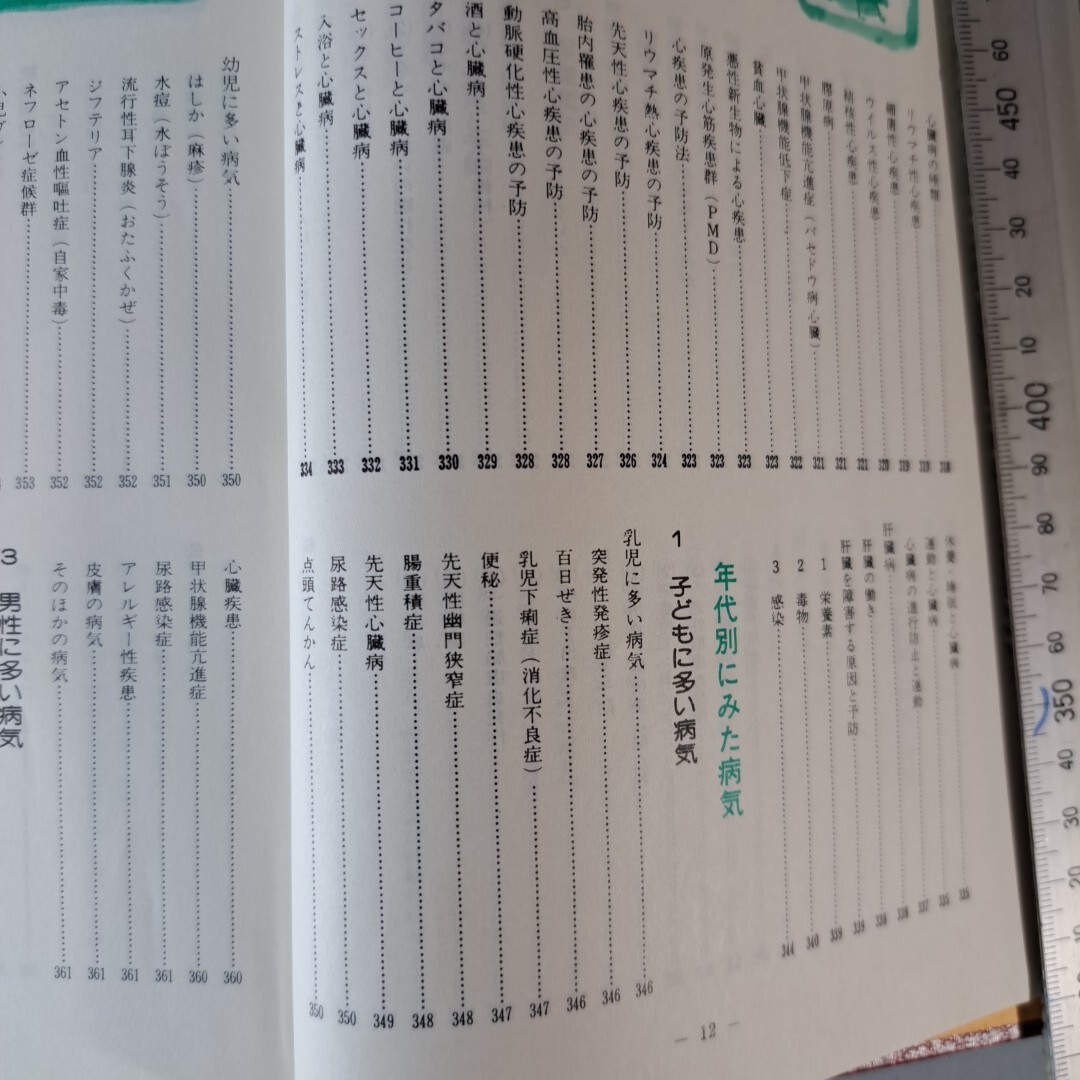 心臓病の種類 318
リウマチ性心疾患 319
細菌性心疾患 319
ウイルス性心疾患 320
結核性心疾患 321
膠原病 321
甲状腺機能亢進症(バセドウ病心臓) 321
甲状腺機能低下症 322
貧血心臓 323
悪性新生物による心疾患 323
原発生心筋疾患群(PMD) 323
心疾患の予防法 323
リウマチ熱心疾患の予防 324
先天性心疾患の予防 326
胎内罹患の心疾患の予防 327
高血圧性心疾患の予防 328
動脈硬化性心疾患の予防 328
酒と心臓病 329
タバコと心臓病 330
コーヒーと心臓病 331
セックスと心臓病 332
入浴と心臓病 333
ストレスと心臓病 334
休養・睡眠と心臓病 335
運動と心臓病 335
心臓病の進行防止と運動 337
肝臓病 338
肝臓の働き 338
肝臓を障害する原因と予防 339
1 栄養素 339
2 毒物 340
3 感染 344
年代別にみた病気
1 子どもに多い病気
乳児に多い病気 346
突発性発疹症 346
百日ぜき 346
乳児下痢症(消化不良症) 347
便秘 347
先天性幽門狭窄症 348
腸重積症 348
先天性心臓病 349
尿路感染症 350
点頭てんかん 350
— 12 —
幼児に多い病気 350
はしか(麻疹) 350
水痘(水ぼうそう) 351
流行性耳下腺炎(おたふくかぜ) 352
ジフテリア 352
アセトン血性嘔吐症(自家中毒) 352
ネフローゼ症候群 353
心臓疾患 360
甲状腺機能亢進症 360
尿路感染症 361
アレルギー性疾患 361
皮膚の病気 361
そのほかの病気 361
3 男性に多い病気
60
450
40
30
20
10
400
90
80
70
60
350
40
30
20